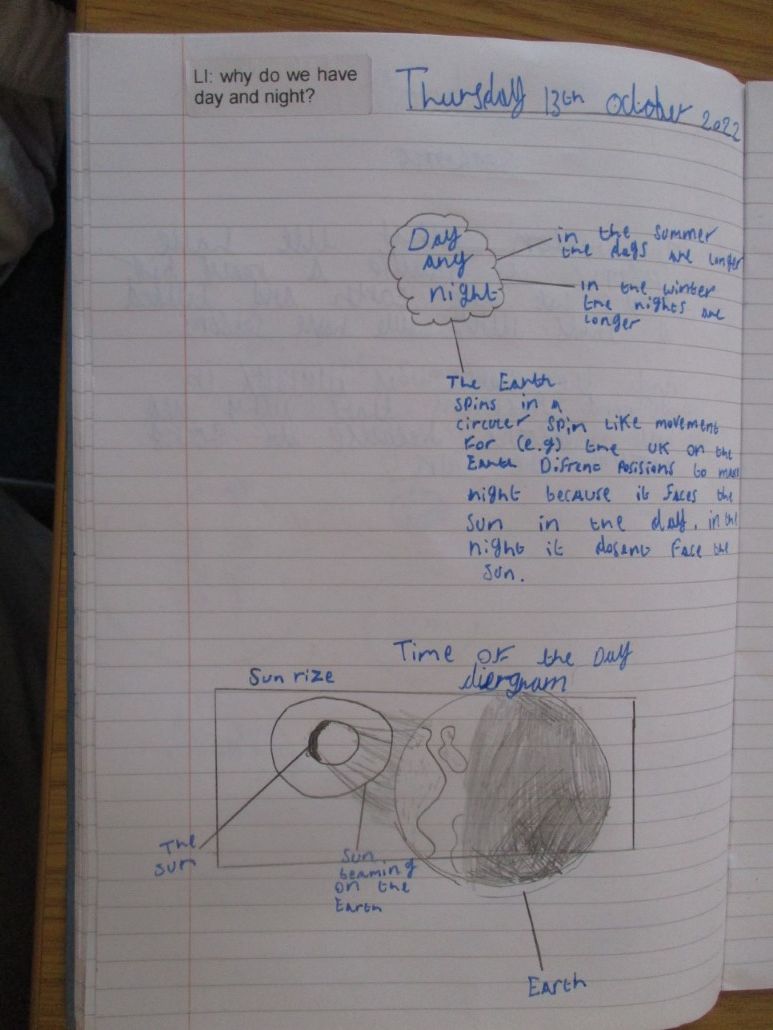 LI: why do we have
day and night?
Thursday 13th October 2022
Day
any
night
in the summer
the days are longer
in the winter
the nights are
longer
The Earth
spins in a
circuler spin like movement
For (e.g) the UK on the
Earth Difrent Posisions to
night because it faces the
sun in the day. in the
night it dosant face the
sun.
Time of the Day
diergram
Sun rize
The
sun
Sun
beaming
on the
Earth
Earth